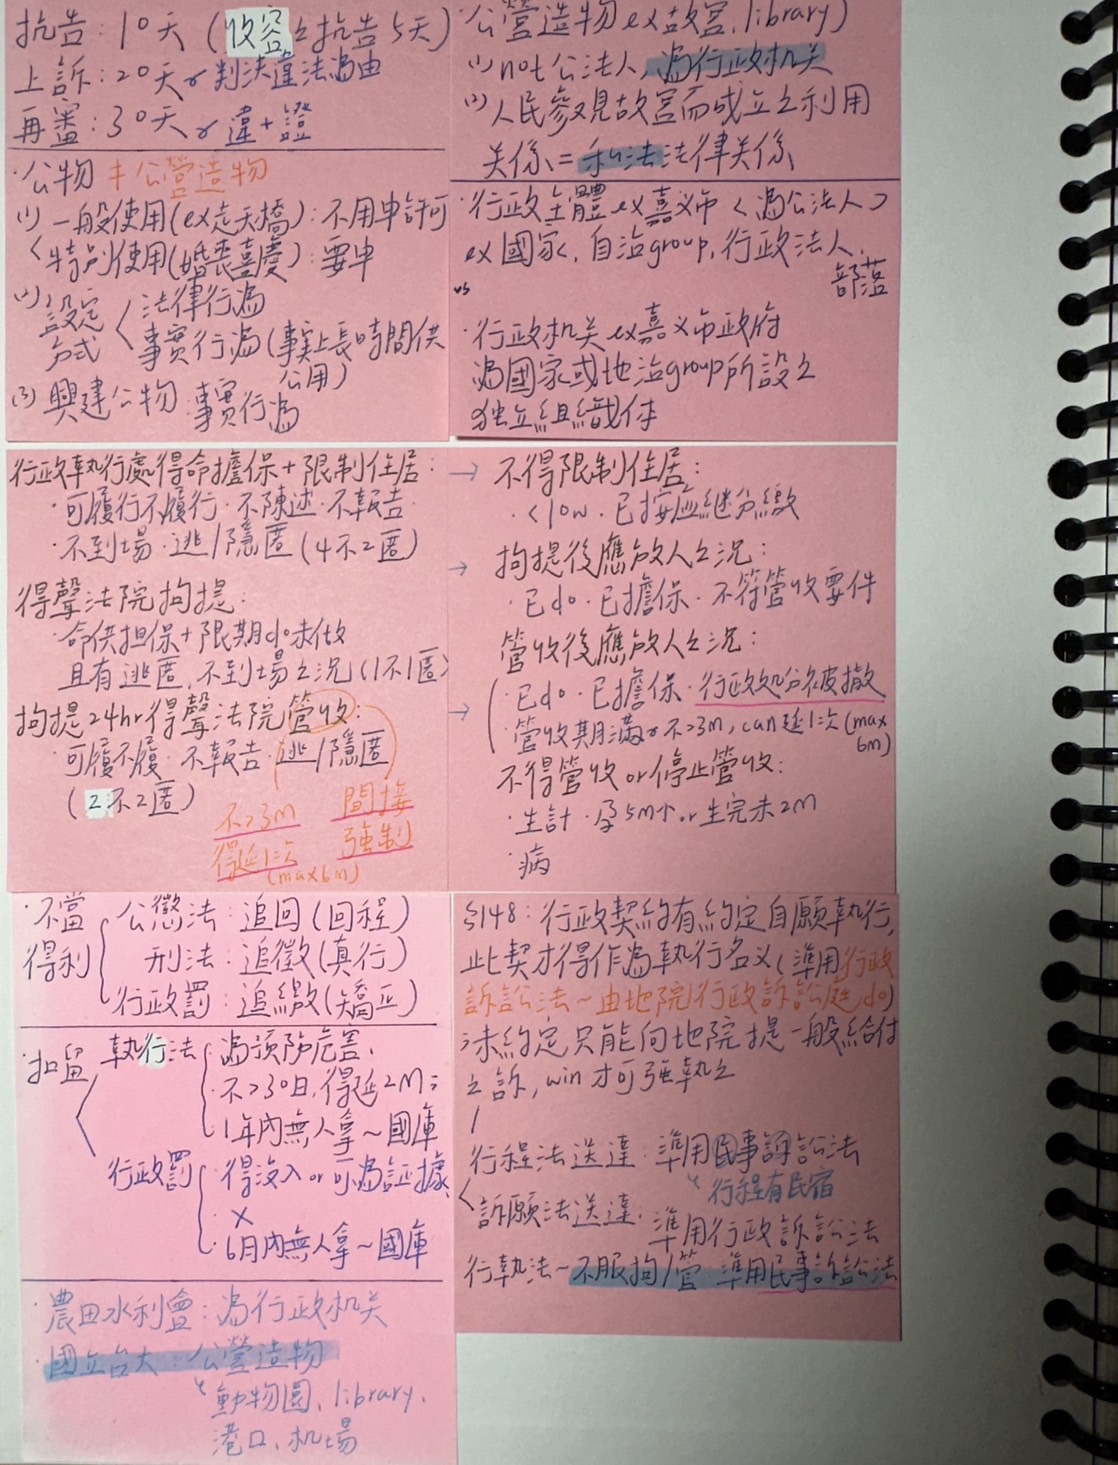 抗告：10天（收容之抗告5天）
上訴：20天 判決違法為由
再審：30天 違+證
·公物 ≠公營造物
(1) 一般使用(ex走天橋)：不用申許可
特別使用(婚喪喜慶)：要申
(2) 設定方式 法律行為
事實行為(事實上長時間供公用)
(3) 興建公物：事實行為
·公營造物ex故宮.library)
(1) not公法人,為行政机关
(2) 人民參观故宮而成立之利用
关係=私法法律关係
·行政主體ex嘉义市<為公法人>
ex國家,自治group,行政法人,
部落
vs
·行政机关ex嘉义市政府
為國家或地治group所設之
独立組織体
行政執行處得命擔保+限制住居：
·可履行不履行·不陳述·不報告
·不到場·逃/隱匿(4不2匿)
得聲法院拘提：
·命供担保+限期do未做
且有逃匿,不到場之況(1不1匿)
拘提24hr得聲法院管收：
·可履不履·不報告·逃/隱匿
(2不2匿)
不>3m 間接
得延1次 強制
(max6m)
→ 不得限制住居：
·<10w·已按应継分繳
→ 拘提後應放人之況：
·已do·已擔保·不符管收要件
管收後應放人之況：
→ ·已do·已擔保·行政処分被撤
·管收期滿 不>3m, can延1次(max
6m)
不得管收or停止管收：
·生計·孕5m↑or生完未2m
·病
·不當得利 公懲法：追回(回程)
刑法：追徵(真行)
行政罰：追繳(矯正)
·扣留 執行法 為預防危害.
·不>30日,得延2M
·1年內無人拿~國庫
行政罰 ·得沒入or可為証據
·×
·6月內無人拿~國庫
·農田水利會：為行政机关
·國立台大：公營造物
動物園、library、
港口、机場
§148：行政契約有約定自願執行,
此契才得作為執行名义(準用行政
訴訟法~由地院行政訴訟庭do)
未約定只能向地院提一般給付
之訴,win才可強執之
行程法送達：準用民事訴訟法
行程有民宿
訴願法送達：準用行政訴訟法
行執法~不服拘/管 準用民事訴訟法